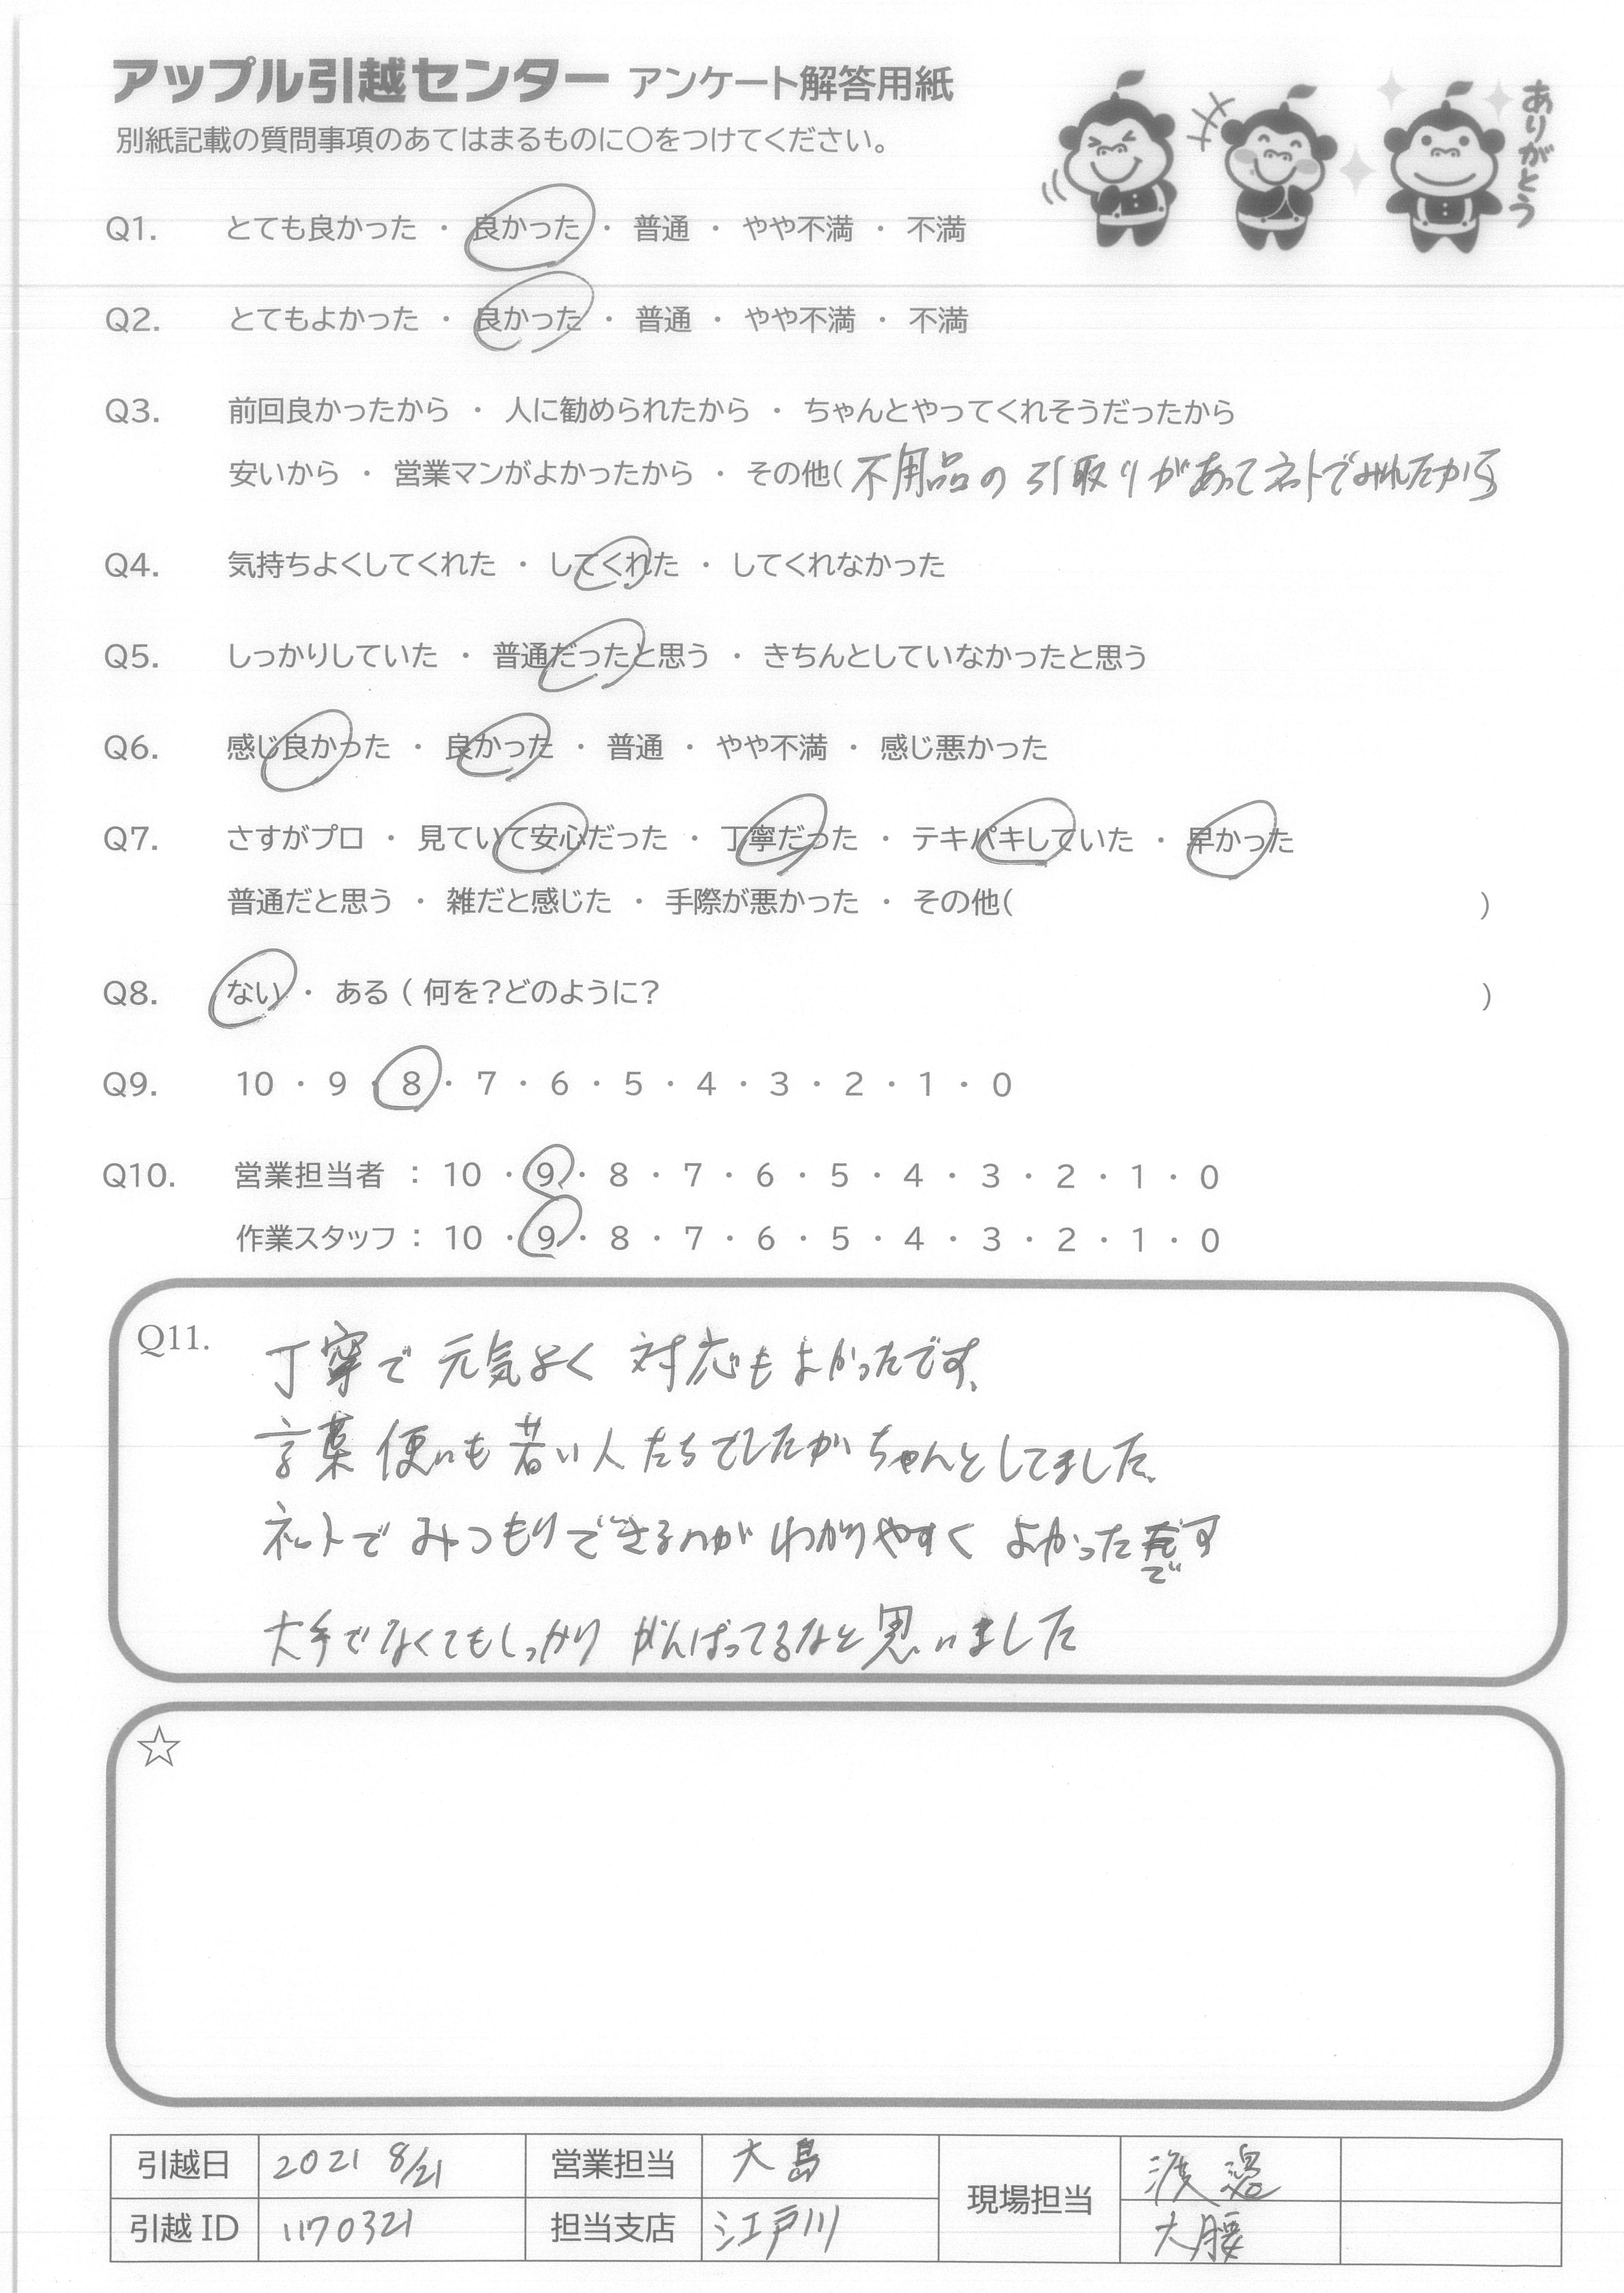 アップル引越センター アンケート解答用紙
別紙記載の質問事項のあてはまるものに〇をつけてください。
ありがとう
Q1. とても良かった ・ 良かった ・ 普通 ・ やや不満 ・ 不満
Q2. とてもよかった ・ 良かった ・ 普通 ・ やや不満 ・ 不満
Q3. 前回良かったから ・ 人に勧められたから ・ ちゃんとやってくれそうだったから
安いから ・ 営業マンがよかったから ・ その他( 不用品の引取りがあってネットでみれたから
Q4. 気持ちよくしてくれた ・ してくれた ・ してくれなかった
Q5. しっかりしていた ・ 普通だったと思う ・ きちんとしていなかったと思う
Q6. 感じ良かった ・ 良かった ・ 普通 ・ やや不満 ・ 感じ悪かった
Q7. さすがプロ ・ 見ていて安心だった ・ 丁寧だった ・ テキパキしていた ・ 早かった
普通だと思う ・ 雑だと感じた ・ 手際が悪かった ・ その他( )
Q8. ない ・ ある ( 何を?どのように? )
Q9. 10 ・ 9 ・ 8 ・ 7 ・ 6 ・ 5 ・ 4 ・ 3 ・ 2 ・ 1 ・ 0
Q10. 営業担当者 : 10 ・ 9 ・ 8 ・ 7 ・ 6 ・ 5 ・ 4 ・ 3 ・ 2 ・ 1 ・ 0
作業スタッフ : 10 ・ 9 ・ 8 ・ 7 ・ 6 ・ 5 ・ 4 ・ 3 ・ 2 ・ 1 ・ 0
Q11. 丁寧で元気よく 対応もよかったです。
言葉使いも若い人たちでしたがちゃんとしてました。
ネットでみつもりできるのがわかりやすく よかったです
大手でなくてもしっかり がんばってるなと思いました
☆
引越日 2021 8/21 営業担当 大島 現場担当 渡邉
引越ID 1170321 担当支店 江戸川 大腰